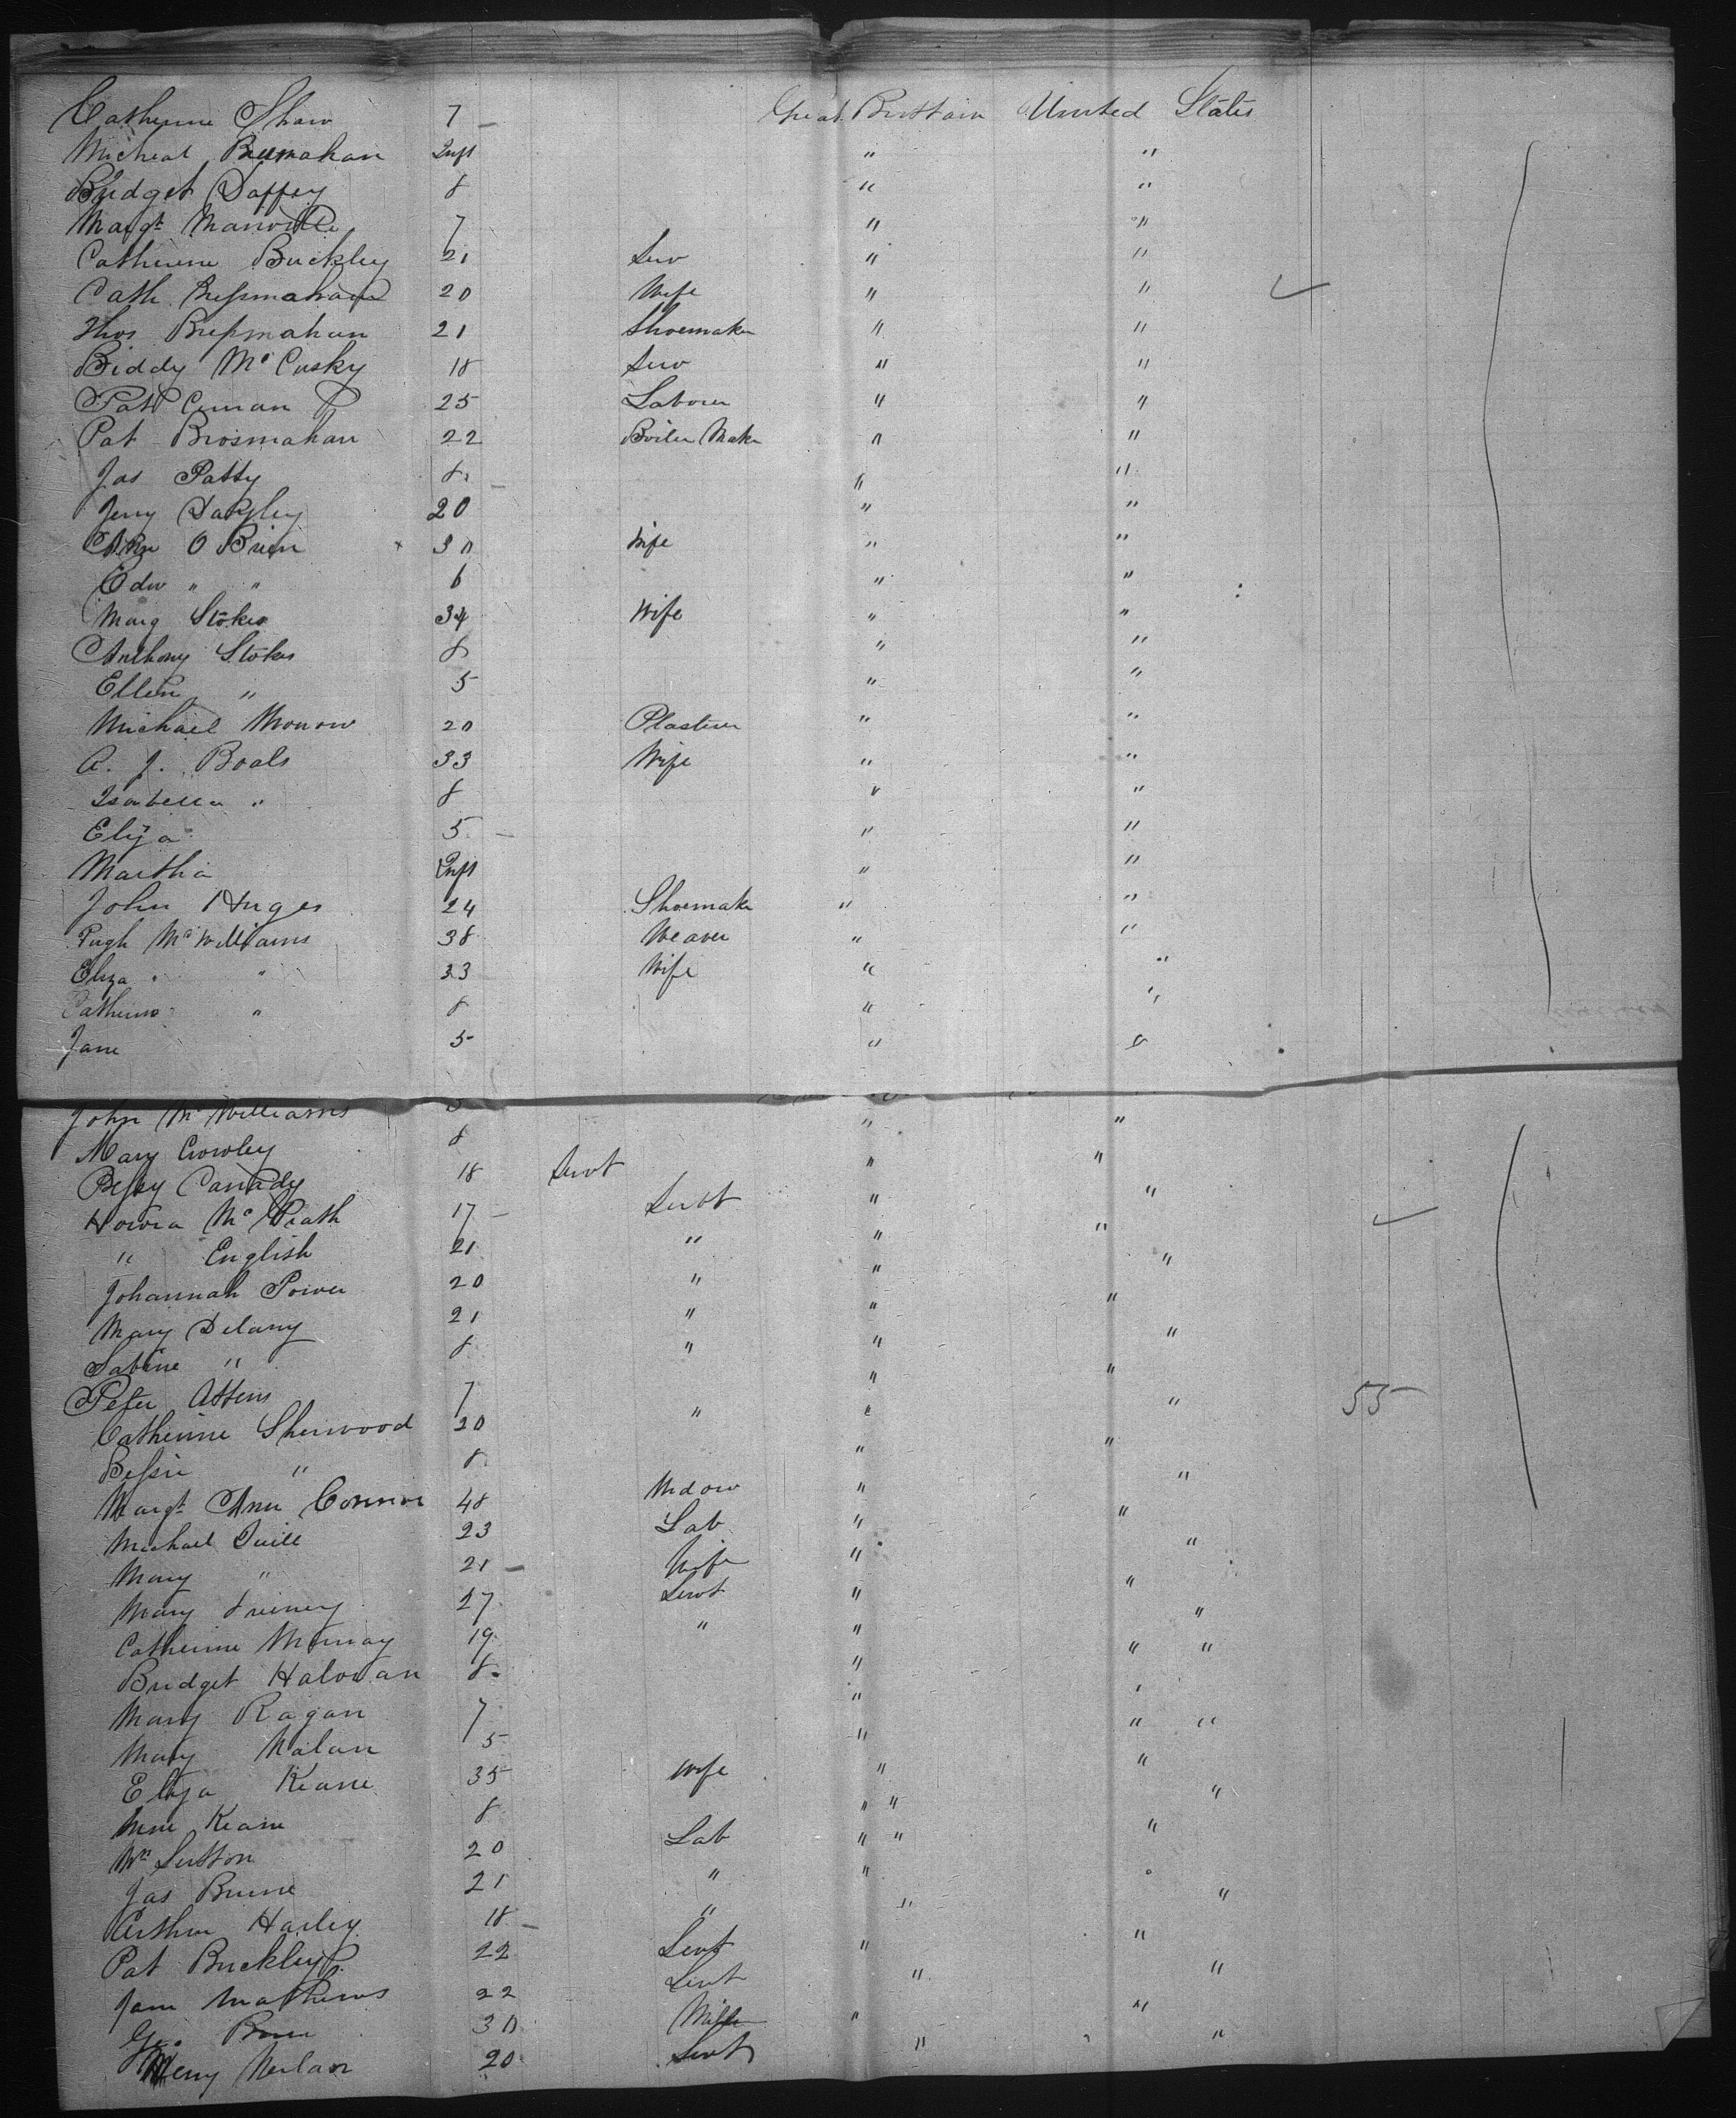 Catherine Shaw 7 Great Brittain United States
Micheal Inft " "
Bridget Daffey 8 " "
Margt Manville 7 " "
Catherine Buckley 21 Serv " "
Cath Bresmahan 20 Wife " "
Thos Bresmahan 21 Shoemaker " "
Biddy Mc Cusky 18 Serv " "
Pat Curran 25 Laborer " "
Pat Brosmahan 22 Boiler Maker " "
Jas Patty 8 " "
Jerry Dayley 20 " "
Ann O Brien 30 Wife " "
Edw " " 6 " "
Marg Stokes 34 Wife " "
Anthony Stokes 8 " "
Ellen " 5 " "
Michael Morrow 20 Plasterer " "
A. J. Boals 33 Wife " "
Isabella " 8 " "
Eliza 5 " "
Martha Inft " "
John Huges 24 Shoemaker " "
Hugh Mc Williams 38 Weaver " "
Eliza " " 33 Wife " "
Catherine " 8 " "
Jane 5 " "
John Mc Williams " "
Mary Crowley 8 " "
Bessy Canady 18 Servt " "
Honora Mc Grath 17 Servt " "
" English 21 " " "
Johannah Power 20 " " "
Mary Delany 21 " " "
Sabine " 8 " " "
Peter 7 " " 55
Catherine Sherwood 20 " " "
Bessie " 8 " "
Margt Ann Connor 48 Widow " "
Michael Quill 23 Lab " "
Mary " 21 Wife " "
Mary 27 Servt " "
Catherine Murray 19 " " " "
Bridget Halowan 8 " "
Mary Ragan 7 " " "
Mary Nolan 5 " "
Eliza Keane 35 Wife " "
Keane 8 " " "
Wm Sutton 20 Lab " " "
Jas Burne 21 " " "
Arthur Harley 18 " " "
Pat Buckley 22 Servt " "
Jane Mathews 22 Servt " "
Geo 30 Miller " "
20 Servt "